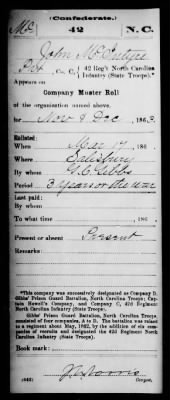 (Confederate.)
Mc 42 N.C.
John McIntyre
Pvt, Co. C, 42 Reg't North Carolina
Infantry (State Troops).
Appears on
Company Muster Roll
of the organization named above,
for Nov & Dec, 1863.
Enlisted:
When Mar 17, 186
Where Salisbury
By whom G. C. Gibbs
Period 3 years or the war
Last paid:
By whom
To what time , 186
Present or absent Present
Remarks:
*This company was successively designated as Company D,
Gibbs' Prison Guard Battalion, North Carolina Troops; Captain
Howell's Company, and Company C, 42d Regiment
North Carolina Infantry (State Troops).
Gibbs' Prison Guard Battalion, North Carolina Troops,
consisted of four companies, A to D. The battalion was raised
to a regiment about May, 1862, by the addition of six companies
of recruits and designated the 42d Regiment North
Carolina Infantry (State Troops).
Book mark:
(642)
Copyist.